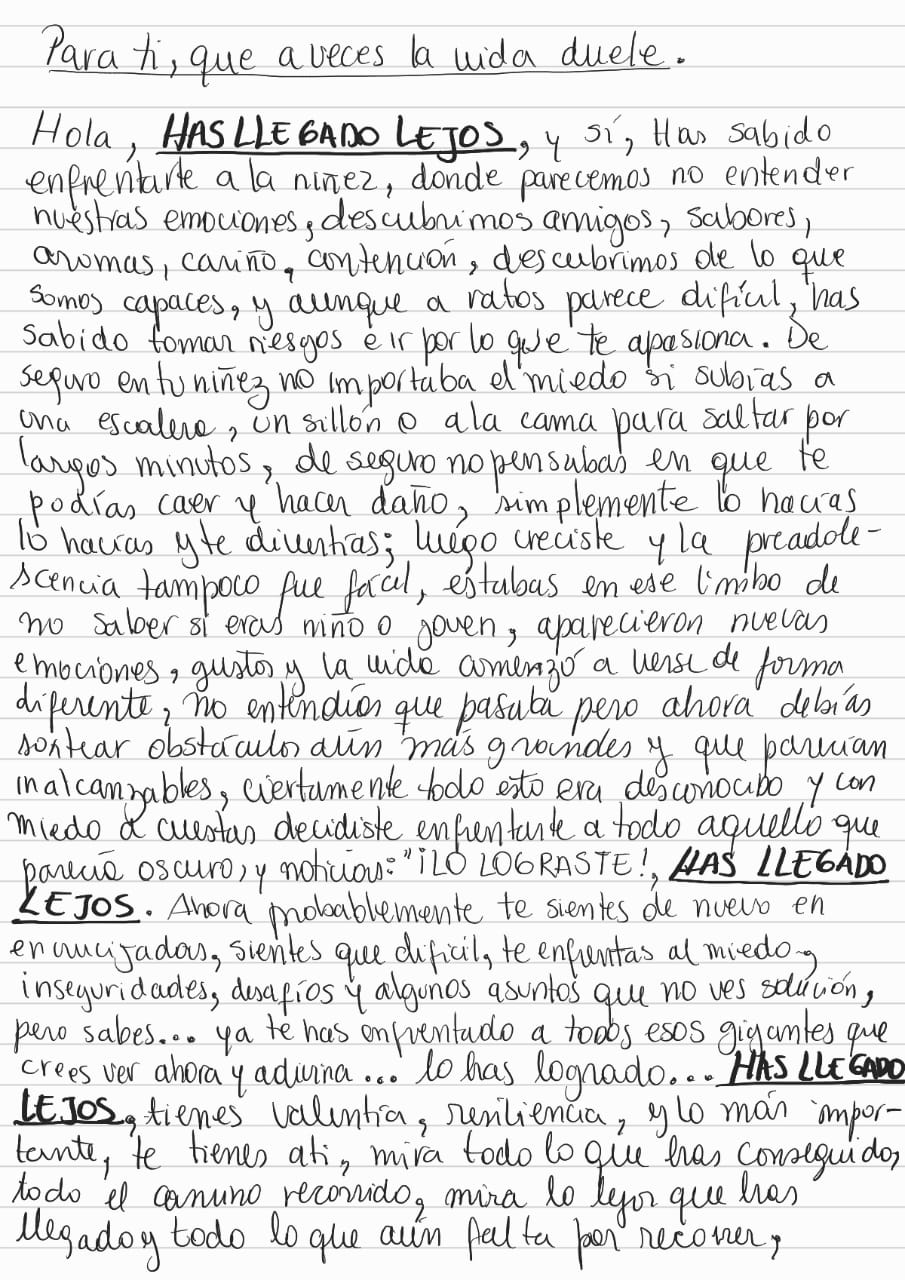 Para ti, que a veces la vida duele.
Hola, HAS LLEGADO LEJOS, y sí, Has sabido
enfrentarte a la niñez, donde parecemos no entender
nuestras emociones, descubrimos amigos, sabores,
aromas, cariño, contención, descubrimos de lo que
somos capaces, y aunque a ratos parece difícil, has
sabido tomar riesgos e ir por lo que te apasiona. De
seguro en tu niñez no importaba el miedo si subías a
una escalera, un sillón o a la cama para saltar por
largos minutos, de seguro no pensabas en que te
podías caer y hacer daño, simplemente lo hacías
lo hacías y te divertías; luego creciste y la preadole-
scencia tampoco fue fácil, estabas en ese limbo de
no saber si eras niño o joven, aparecieron nuevas
emociones, gustos y la vida comenzó a verse de forma
diferente, no entendías que pasaba pero ahora debías
sortear obstáculos aún más grandes y que parecían
inalcanzables, ciertamente todo esto era desconocido y con
miedo a cuestas decidiste enfrentarte a todo aquello que
parecía oscuro, y noticias: "¡LO LOGRASTE!, HAS LLEGADO
LEJOS. Ahora probablemente te sientes de nuevo en
encrucijadas, sientes que difícil, te enfrentas al miedo,
inseguridades, desafíos y algunos asuntos que no ves solución,
pero sabes... ya te has enfrentado a todos esos gigantes que
crees ver ahora y adivina... lo has logrado... HAS LLEGADO
LEJOS, tienes valentía, resiliencia, y lo más impor-
tante, te tienes a ti, mira todo lo que has conseguido,
todo el camino recorrido, mira lo lejos que has
llegado y todo lo que aún falta por recorrer,